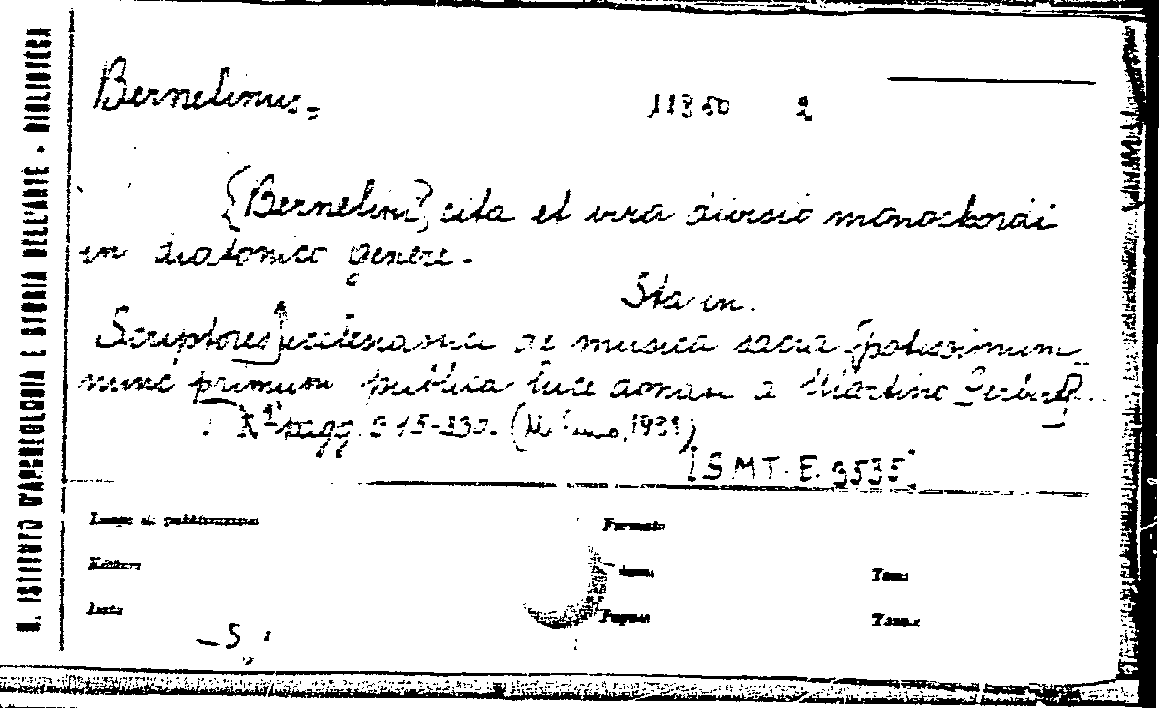 R. ISTITUTO D'ARCHEOLOGIA E STORIA DELL'ARTE - BIBLIOTECA
Bernelinus=
11860 2
[Bernelini], cita et vera divisio monochordi
in diatonico genere.
Sta in.
Scriptores] ecclesiastici de musica sacra [potissimum
nunc primum publica luce donati a Martino Gerbert]
pagg. (Milano, 1931)
[SMT. E. 3535]
Luogo di pubblicazione
Formato
Editore
Tomi
Data
Pagine
Tavole
5